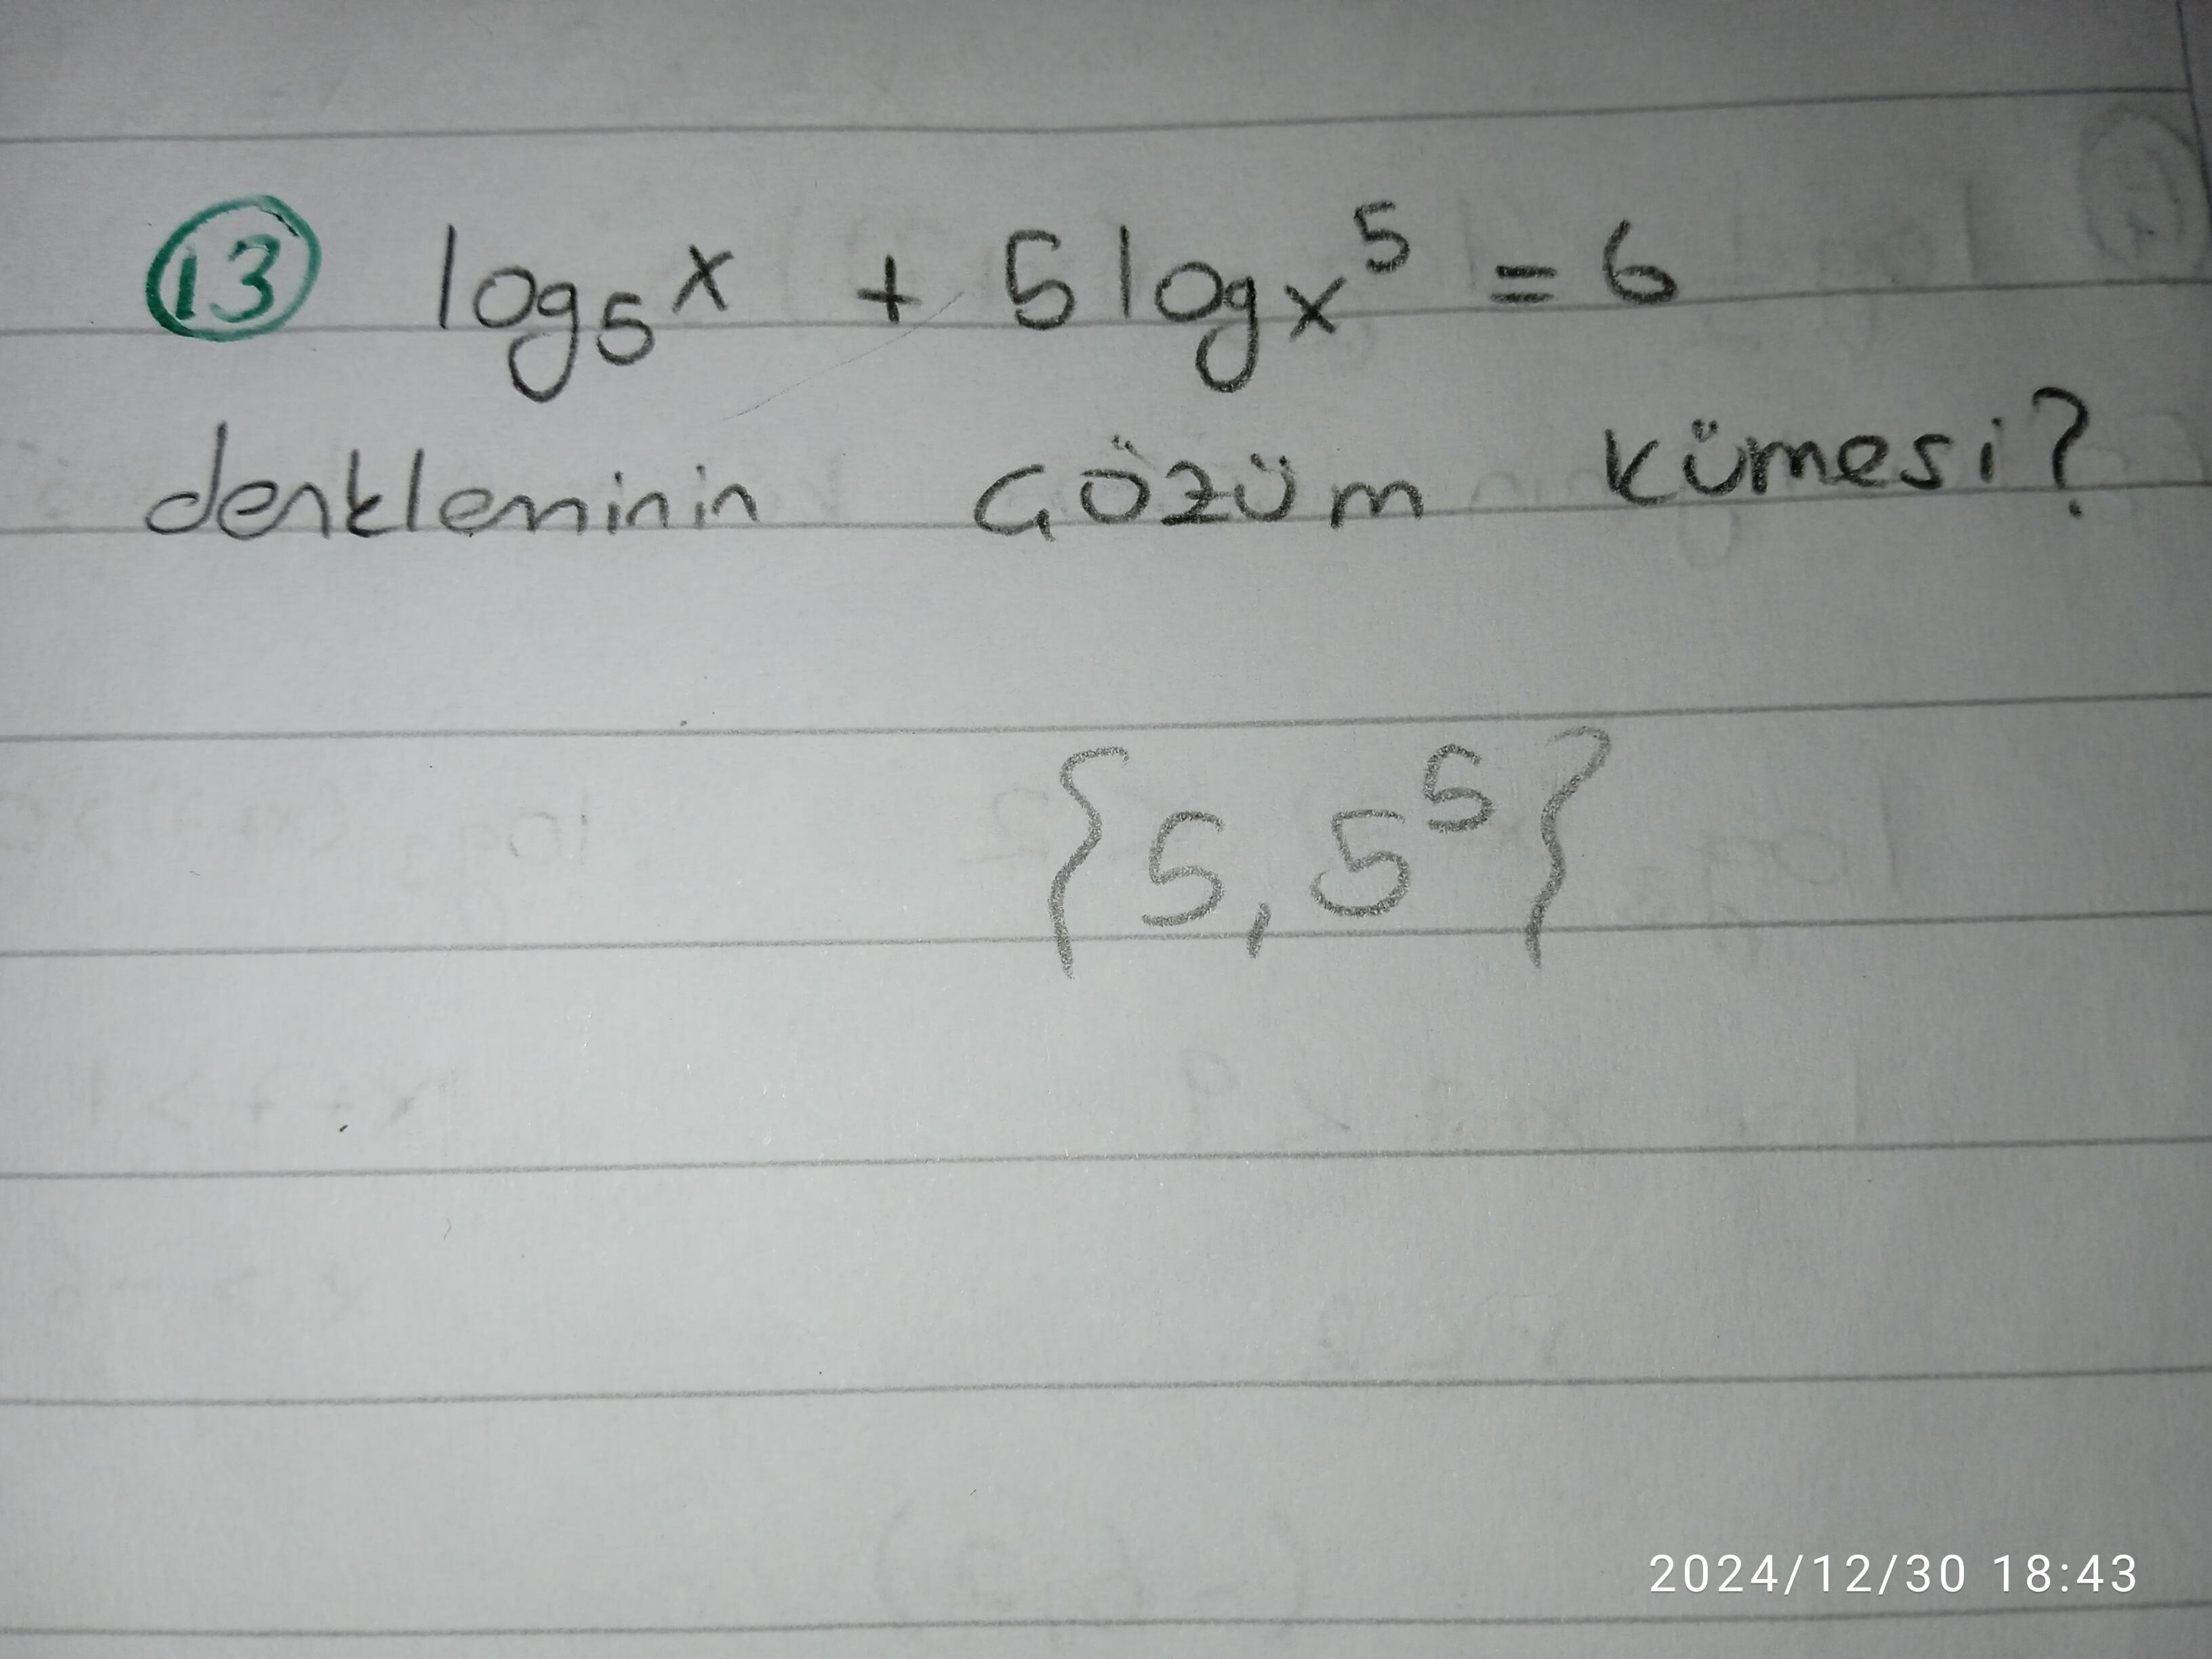 13 log₅ˣ + 5 logₓ⁵ = 6
denkleminin çözüm kümesi?
{5, 5⁵}
2024/12/30 18:43